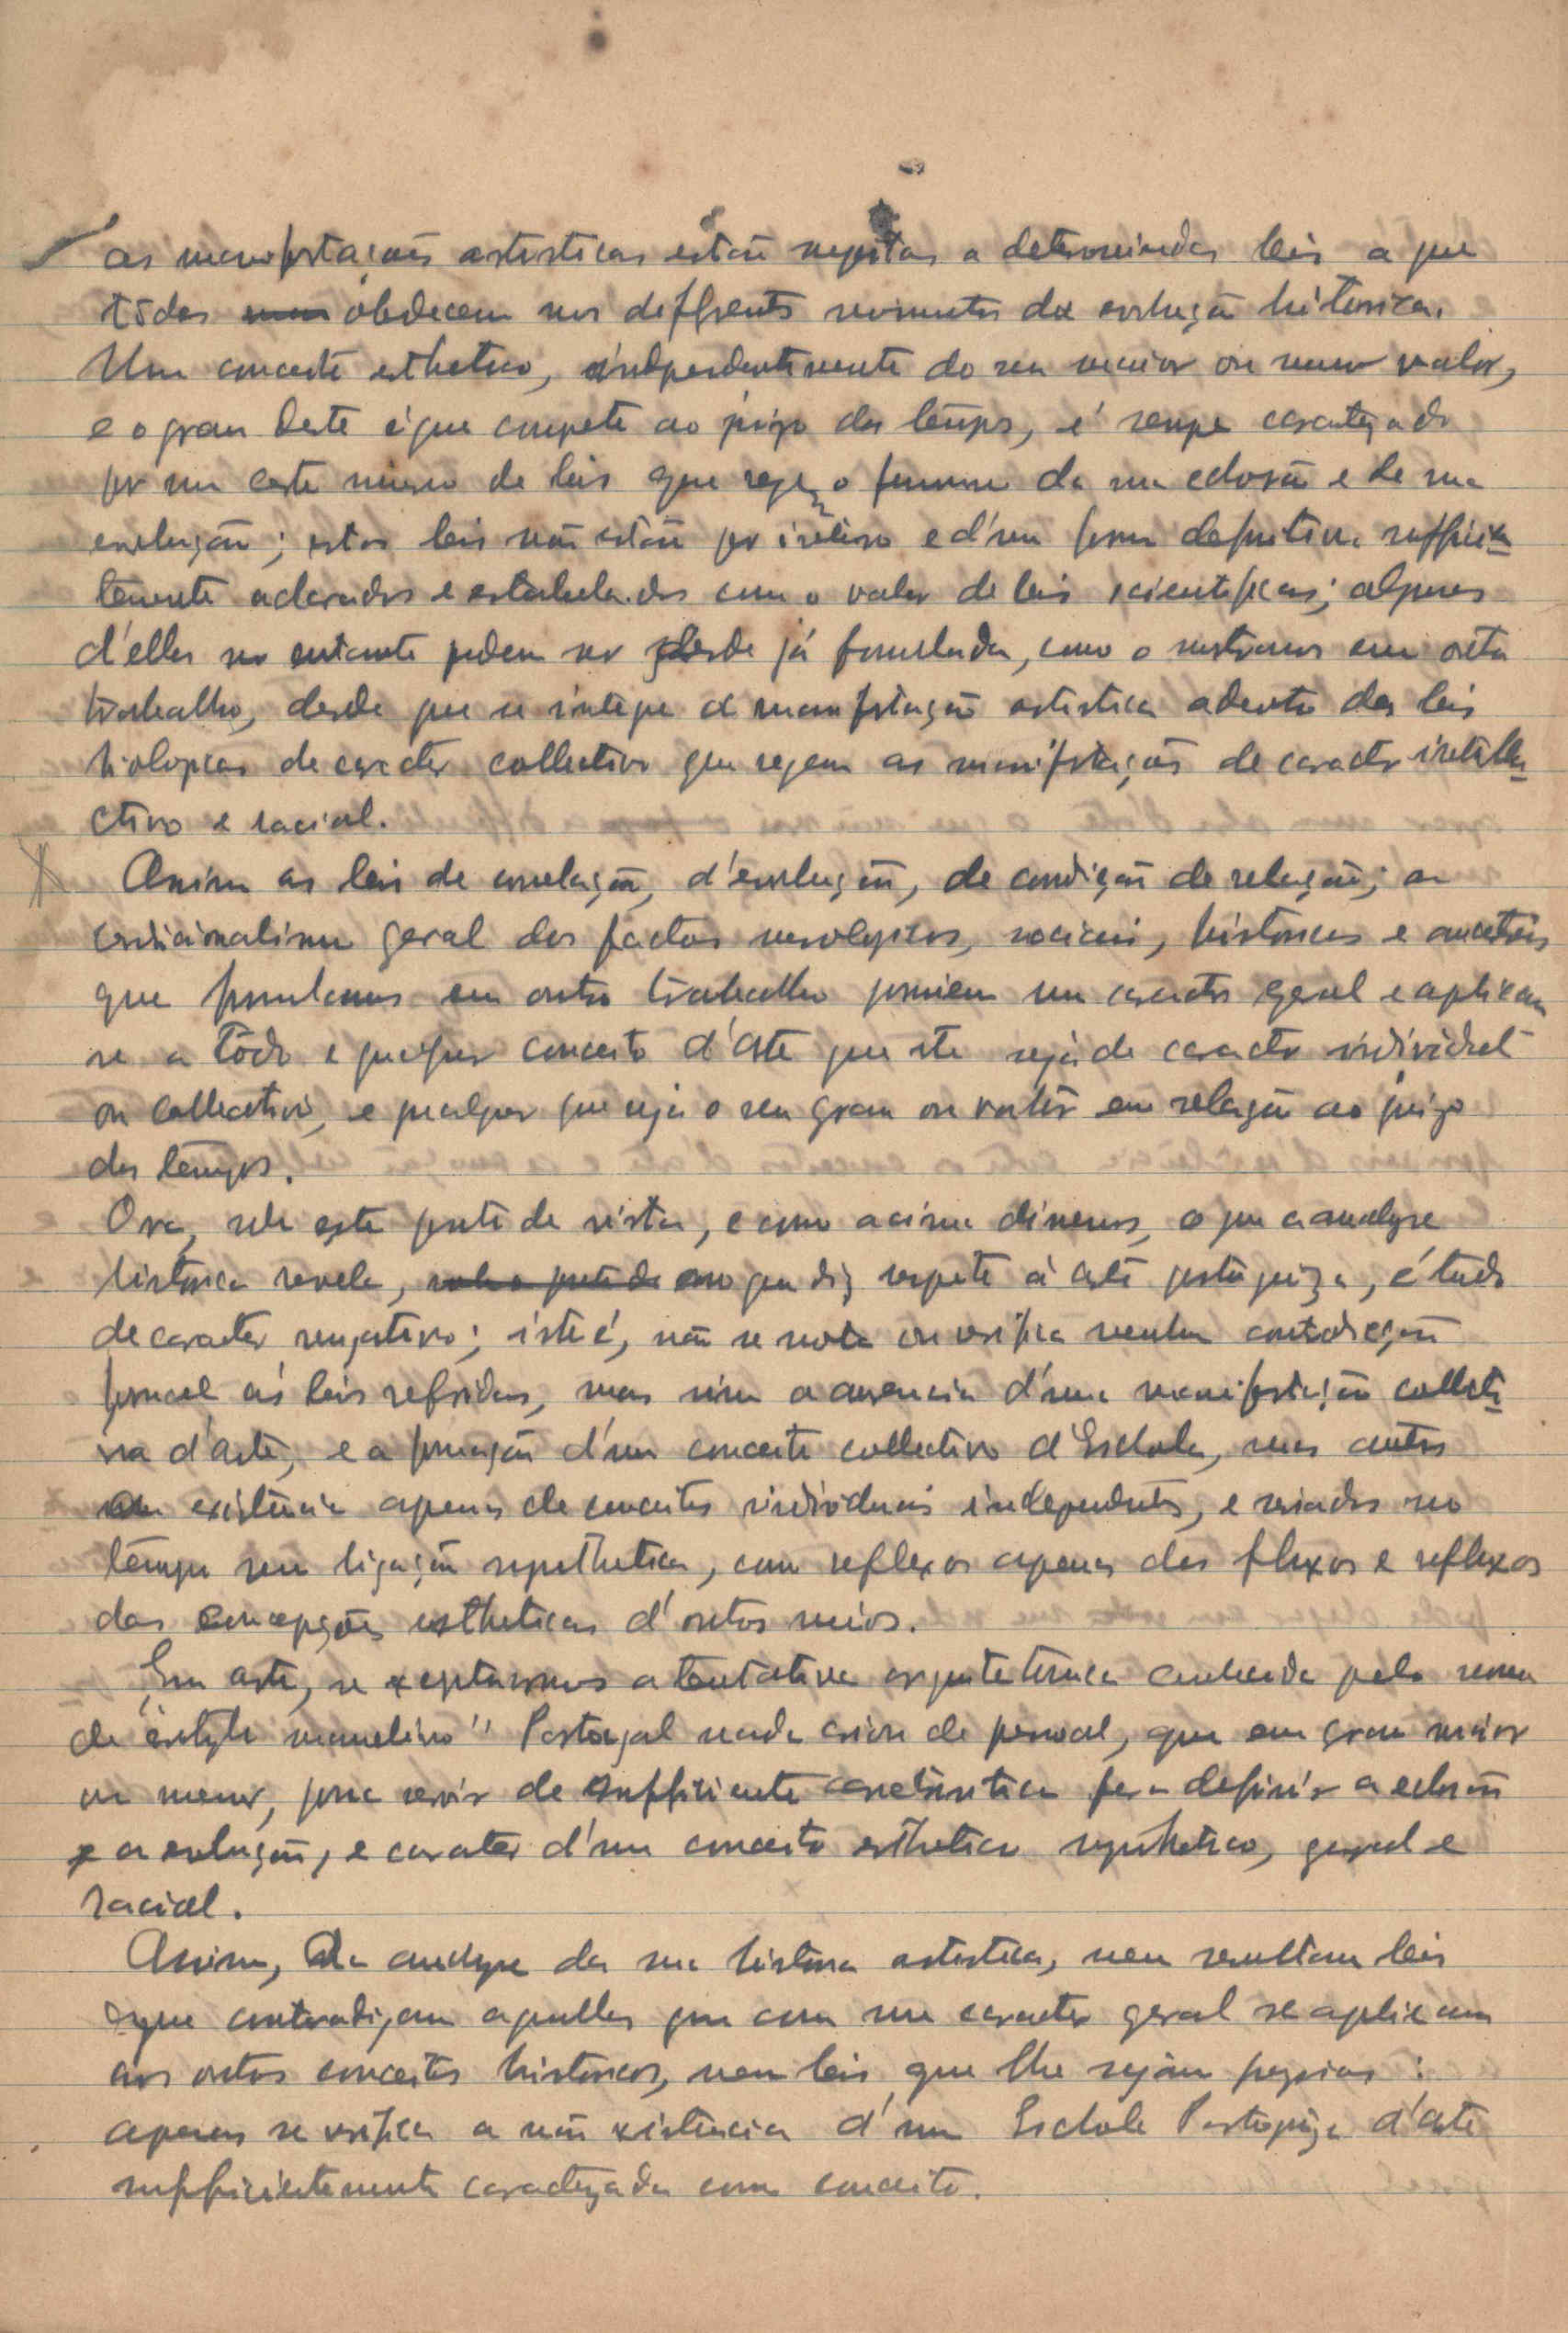 as manifestações artisticas estão sugeitas a determinadas leis a que
tôdas obedecem nos differentes momentos da evolução historica.
Um conceito esthetico, independentemente do seu maior ou menor valor,
e o grau deste é que compete ao juizo dos tempos, é sempre caracterizado
por um certo numero de leis que regem o fenomeno da sua eclosão e de sua
evolução; estas leis não estão por inteiro e d'uma forma definitiva sufficien
temente aclaradas e estabelecidas com o valor de leis scientificas; algumas
d'ellas no entanto podem ser desde já formuladas, como o mostramos em outro
trabalho, desde que se integre a manifestação artistica adentro das leis
biologicas de caracter collectivo que regem as manifestações de caracter intelle
ctivo e racial.
Assim as leis de correlação, d'evolução, de condição de relação; o
condicionalismo geral dos factos mesologicos, sociais, historicos e ancestrais
que formulamos em outro trabalho possuem um caracter geral e aplicam
se a todo e qualquer conceito d'arte que este seja de caracter individual
ou collectivo, e qualquer que seja o seu grau ou valôr em relação ao juizo
dos tempos.
Ora, sob este ponto de vista, e como acima dissemos, o que a analyse
historica revela, no que diz respeito á arte portugueza, é tudo
de caracter negativo; isto é, não se nota ou verifica nenhuma contradicção
formal ás leis referidas, mas sim a ausencia d'uma manifestação collecti
va d'arte, e a formação d'um conceito collectivo d'Eschola, mas antes
a existencia apenas de conceitos individuais independentes, e criados no
tempo sem ligação synthetica, com reflexos apenas dos fluxos e reflexos
das concepções estheticas d'outros meios.
Em arte, se exceptuarmos a tentativa arquitetonica conhecida pelo nome
de "estylo manuelino" Portugal nada criou de pessoal, que em grau maior
ou menor, possa servir de sufficiente caracteristica para definir a eclosão
e a evolução, e caracter d'um conceito esthetico synthetico, geral e
racial.
Assim, da analyse da sua historia artistica, nem resultam leis
que contradigam aquellas que com um caracter geral se aplicam
aos outros conceitos historicos, nem leis que lhe sejam proprias:
apenas se verifica a não existencia d'uma Eschola Portugueza d'arte
sufficientemente caracterizada como conceito.